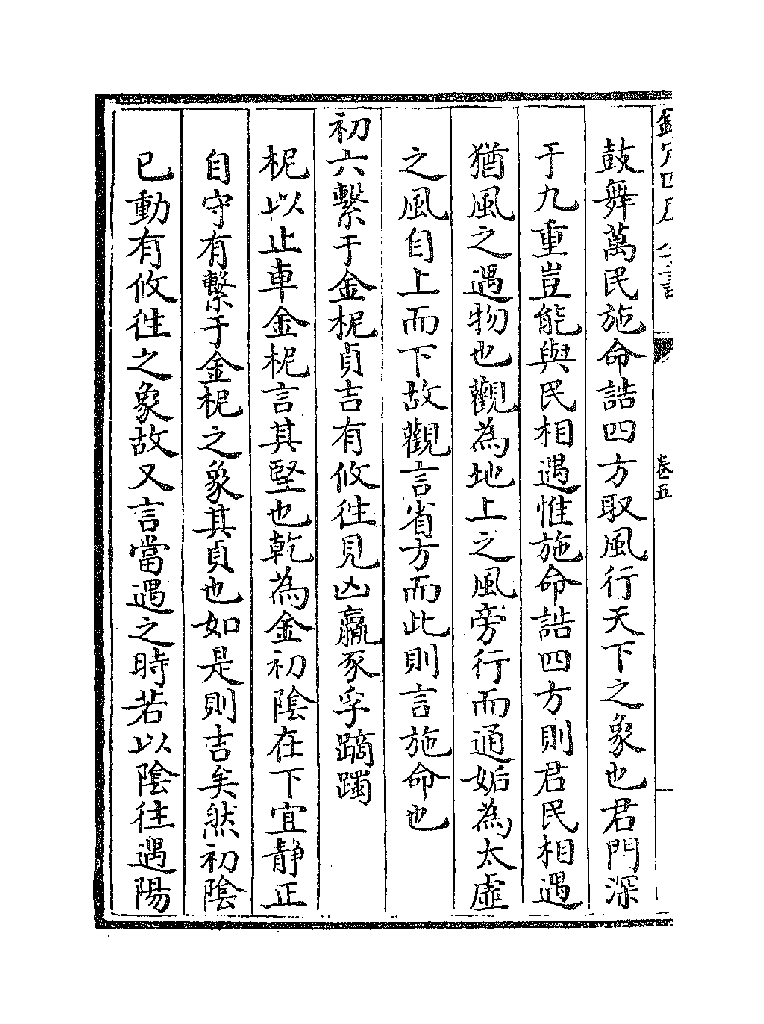 鼓舞萬民施命誥四方取風行天下之象也君門深
于九重豈能與民相遇惟施命誥四方則君民相遇
猶風之遇物也觀為地上之風旁行而通姤為太虛
之風自上而下故觀言省方而此則言施命也
初六繫于金柅貞吉有攸往見凶羸豕孚蹢躅
柅以止車金柅言其堅也乾為金初陰在下宜静正
自守有繫于金柅之象其貞也如是則吉矣然初陰
已動有攸往之象故又言當遇之時若以陰往遇陽
卷五